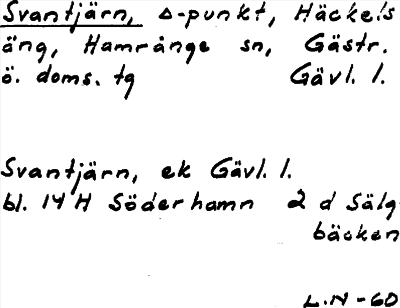 Svantjärn, Δ-punkt, Häckels
äng, Hamrånge sn, Gästr.
ö. doms. tg Gävl. l.
Svantjärn, ek Gävl. l.
bl. 14 H Söderhamn 2 d Sälg
bäcken
L.N-60